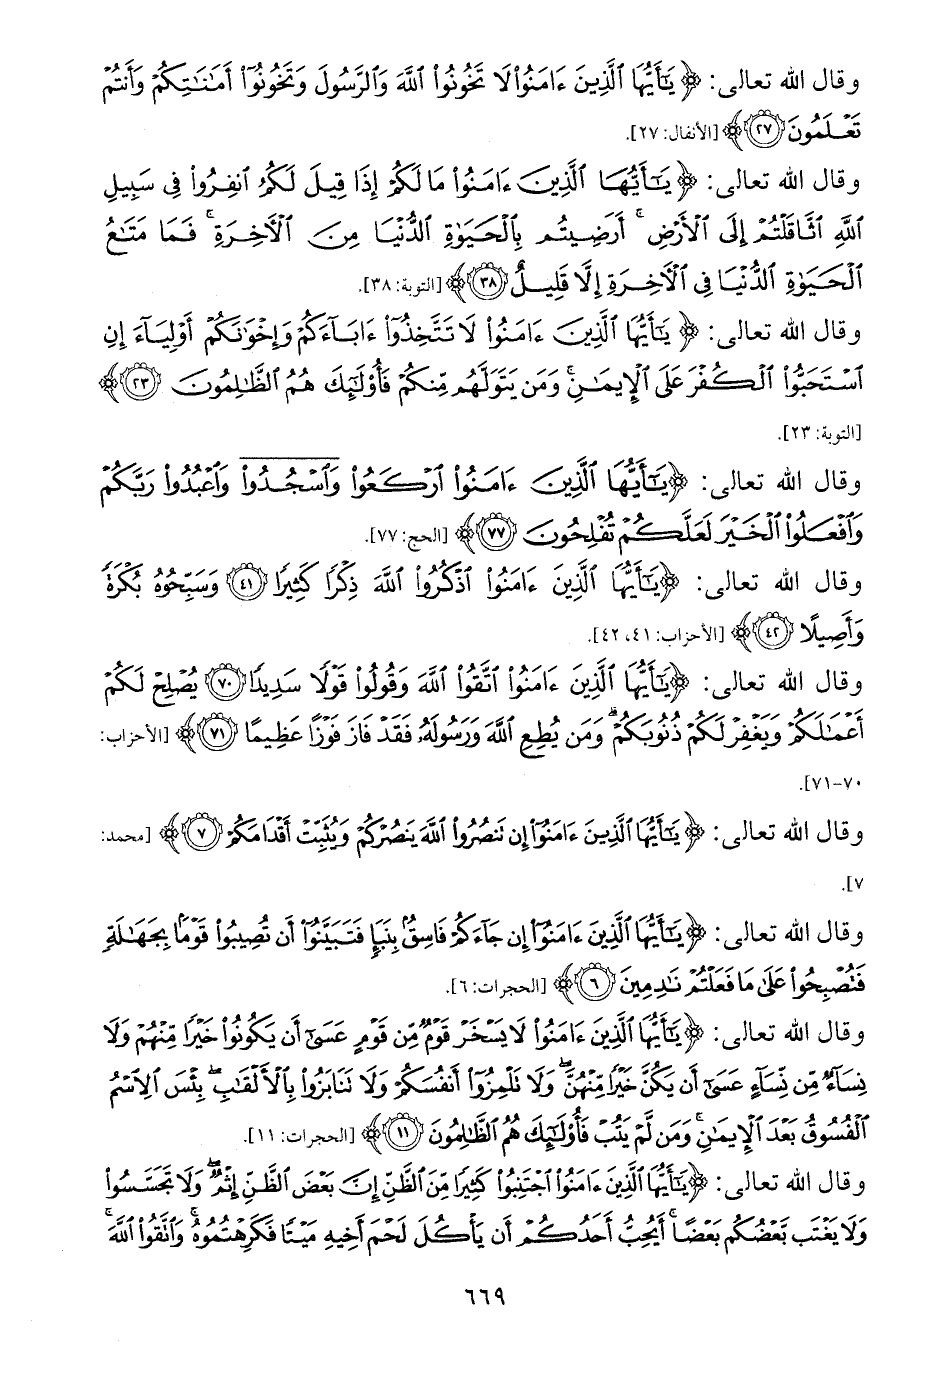 وقال الله تعالى: ﴿يَٰٓأَيُّهَا ٱلَّذِينَ ءَامَنُوا۟ لَا تَخُونُوا۟ ٱللَّهَ وَٱلرَّسُولَ وَتَخُونُوٓا۟ أَمَٰنَٰتِكُمْ وَأَنتُمْ
تَعْلَمُونَ ٢٧﴾ [الأنفال: ٢٧].
وقال الله تعالى: ﴿يَٰٓأَيُّهَا ٱلَّذِينَ ءَامَنُوا۟ مَا لَكُمْ إِذَا قِيلَ لَكُمُ ٱنفِرُوا۟ فِى سَبِيلِ
ٱللَّهِ ٱثَّاقَلْتُمْ إِلَى ٱلْأَرْضِ ۚ أَرَضِيتُم بِٱلْحَيَوٰةِ ٱلدُّنْيَا مِنَ ٱلْءَاخِرَةِ ۚ فَمَا مَتَٰعُ
ٱلْحَيَوٰةِ ٱلدُّنْيَا فِى ٱلْءَاخِرَةِ إِلَّا قَلِيلٌ ٣٨﴾ [التوبة: ٣٨].
وقال الله تعالى: ﴿يَٰٓأَيُّهَا ٱلَّذِينَ ءَامَنُوا۟ لَا تَتَّخِذُوٓا۟ ءَابَآءَكُمْ وَإِخْوَٰنَكُمْ أَوْلِيَآءَ إِنِ
ٱسْتَحَبُّوا۟ ٱلْكُفْرَ عَلَى ٱلْإِيمَٰنِ ۚ وَمَن يَتَوَلَّهُم مِّنكُمْ فَأُو۟لَٰٓئِكَ هُمُ ٱلظَّٰلِمُونَ ٢٣﴾
[التوبة: ٢٣].
وقال الله تعالى: ﴿يَٰٓأَيُّهَا ٱلَّذِينَ ءَامَنُوا۟ ٱرْكَعُوا۟ وَٱسْجُدُوا۟ وَٱعْبُدُوا۟ رَبَّكُمْ
وَٱفْعَلُوا۟ ٱلْخَيْرَ لَعَلَّكُمْ تُفْلِحُونَ ٧٧﴾ [الحج: ٧٧].
وقال الله تعالى: ﴿يَٰٓأَيُّهَا ٱلَّذِينَ ءَامَنُوا۟ ٱذْكُرُوا۟ ٱللَّهَ ذِكْرًا كَثِيرًا ٤١ وَسَبِّحُوهُ بُكْرَةً
وَأَصِيلًا ٤٢﴾ [الأحزاب: ٤١، ٤٢].
وقال الله تعالى: ﴿يَٰٓأَيُّهَا ٱلَّذِينَ ءَامَنُوا۟ ٱتَّقُوا۟ ٱللَّهَ وَقُولُوا۟ قَوْلًا سَدِيدًا ٧٠ يُصْلِحْ لَكُمْ
أَعْمَٰلَكُمْ وَيَغْفِرْ لَكُمْ ذُنُوبَكُمْ ۗ وَمَن يُطِعِ ٱللَّهَ وَرَسُولَهُۥ فَقَدْ فَازَ فَوْزًا عَظِيمًا ٧١﴾ [الأحزاب:
٧٠-٧١].
وقال الله تعالى: ﴿يَٰٓأَيُّهَا ٱلَّذِينَ ءَامَنُوٓا۟ إِن تَنصُرُوا۟ ٱللَّهَ يَنصُرْكُمْ وَيُثَبِّتْ أَقْدَامَكُمْ ٧﴾ [محمد:
٧].
وقال الله تعالى: ﴿يَٰٓأَيُّهَا ٱلَّذِينَ ءَامَنُوٓا۟ إِن جَآءَكُمْ فَاسِقٌۢ بِنَبَإٍ فَتَبَيَّنُوٓا۟ أَن تُصِيبُوا۟ قَوْمًۢا بِجَهَٰلَةٍ
فَتُصْبِحُوا۟ عَلَىٰ مَا فَعَلْتُمْ نَٰدِمِينَ ٦﴾ [الحجرات: ٦].
وقال الله تعالى: ﴿يَٰٓأَيُّهَا ٱلَّذِينَ ءَامَنُوا۟ لَا يَسْخَرْ قَوْمٌ مِّن قَوْمٍ عَسَىٰٓ أَن يَكُونُوا۟ خَيْرًا مِّنْهُمْ وَلَا
نِسَآءٌ مِّن نِّسَآءٍ عَسَىٰٓ أَن يَكُنَّ خَيْرًا مِّنْهُنَّ ۖ وَلَا تَلْمِزُوٓا۟ أَنفُسَكُمْ وَلَا تَنَابَزُوا۟ بِٱلْأَلْقَٰبِ ۖ بِئْسَ ٱلِٱسْمُ
ٱلْفُسُوقُ بَعْدَ ٱلْإِيمَٰنِ ۚ وَمَن لَّمْ يَتُبْ فَأُو۟لَٰٓئِكَ هُمُ ٱلظَّٰلِمُونَ ١١﴾ [الحجرات: ١١].
وقال الله تعالى: ﴿يَٰٓأَيُّهَا ٱلَّذِينَ ءَامَنُوا۟ ٱجْتَنِبُوا۟ كَثِيرًا مِّنَ ٱلظَّنِّ إِنَّ بَعْضَ ٱلظَّنِّ إِثْمٌ ۖ وَلَا تَجَسَّسُوا۟
وَلَا يَغْتَب بَّعْضُكُم بَعْضًا ۚ أَيُحِبُّ أَحَدُكُمْ أَن يَأْكُلَ لَحْمَ أَخِيهِ مَيْتًا فَكَرِهْتُمُوهُ ۚ وَٱتَّقُوا۟ ٱللَّهَ ۚ
٦٦٩